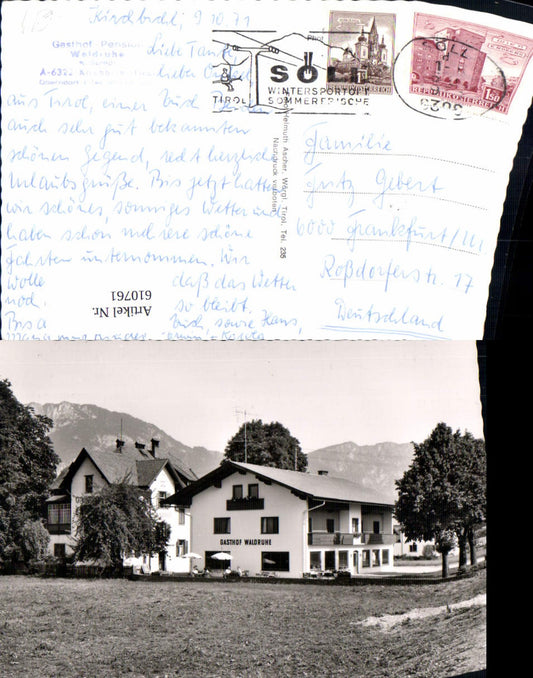 Kirchbichl, 9.10.71
Gasthof-Pension
Waldruhe
A-6322 Kirchbichl
Liebe Tante,
lieber Onkel
aus Tirol, einer Euch
auch sehr gut bekannten
schönen Gegend, recht herzliche
Urlaubsgrüße. Bis jetzt hatten
wir schönes, sonniges Wetter und
haben schon mehrere schöne
Fahrten unternommen. Wir
wolle daß das Wetter
noch so bleibt.
Bis Euch, sowie Hans,
SÖLL
WINTERSPORTORT
SOMMERFRISCHE
TIROL
SÖLL
REPUBLIK ÖSTERREICH
1.50
Helmuth Ascher, Wörgl, Tirol, Tel. 235
Nachdruck verboten
Familie
Fritz Gebert
6000 Frankfurt/M
Roßdorferstr. 17
Deutschland
Artikel Nr.
610761
GASTHOF WALDRUHE